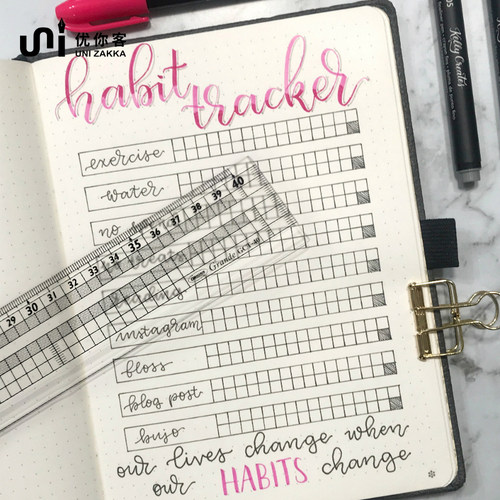 uni 优你客
UNI ZAKKA
habit
tracker
Kelly Creates
05
exercise
water
no
treats
reading
instagram
floss
blog post
bujo
29 30 31 32 33 34 35 36 37 38 39 40
Grande
our lives change when
our HABITS change